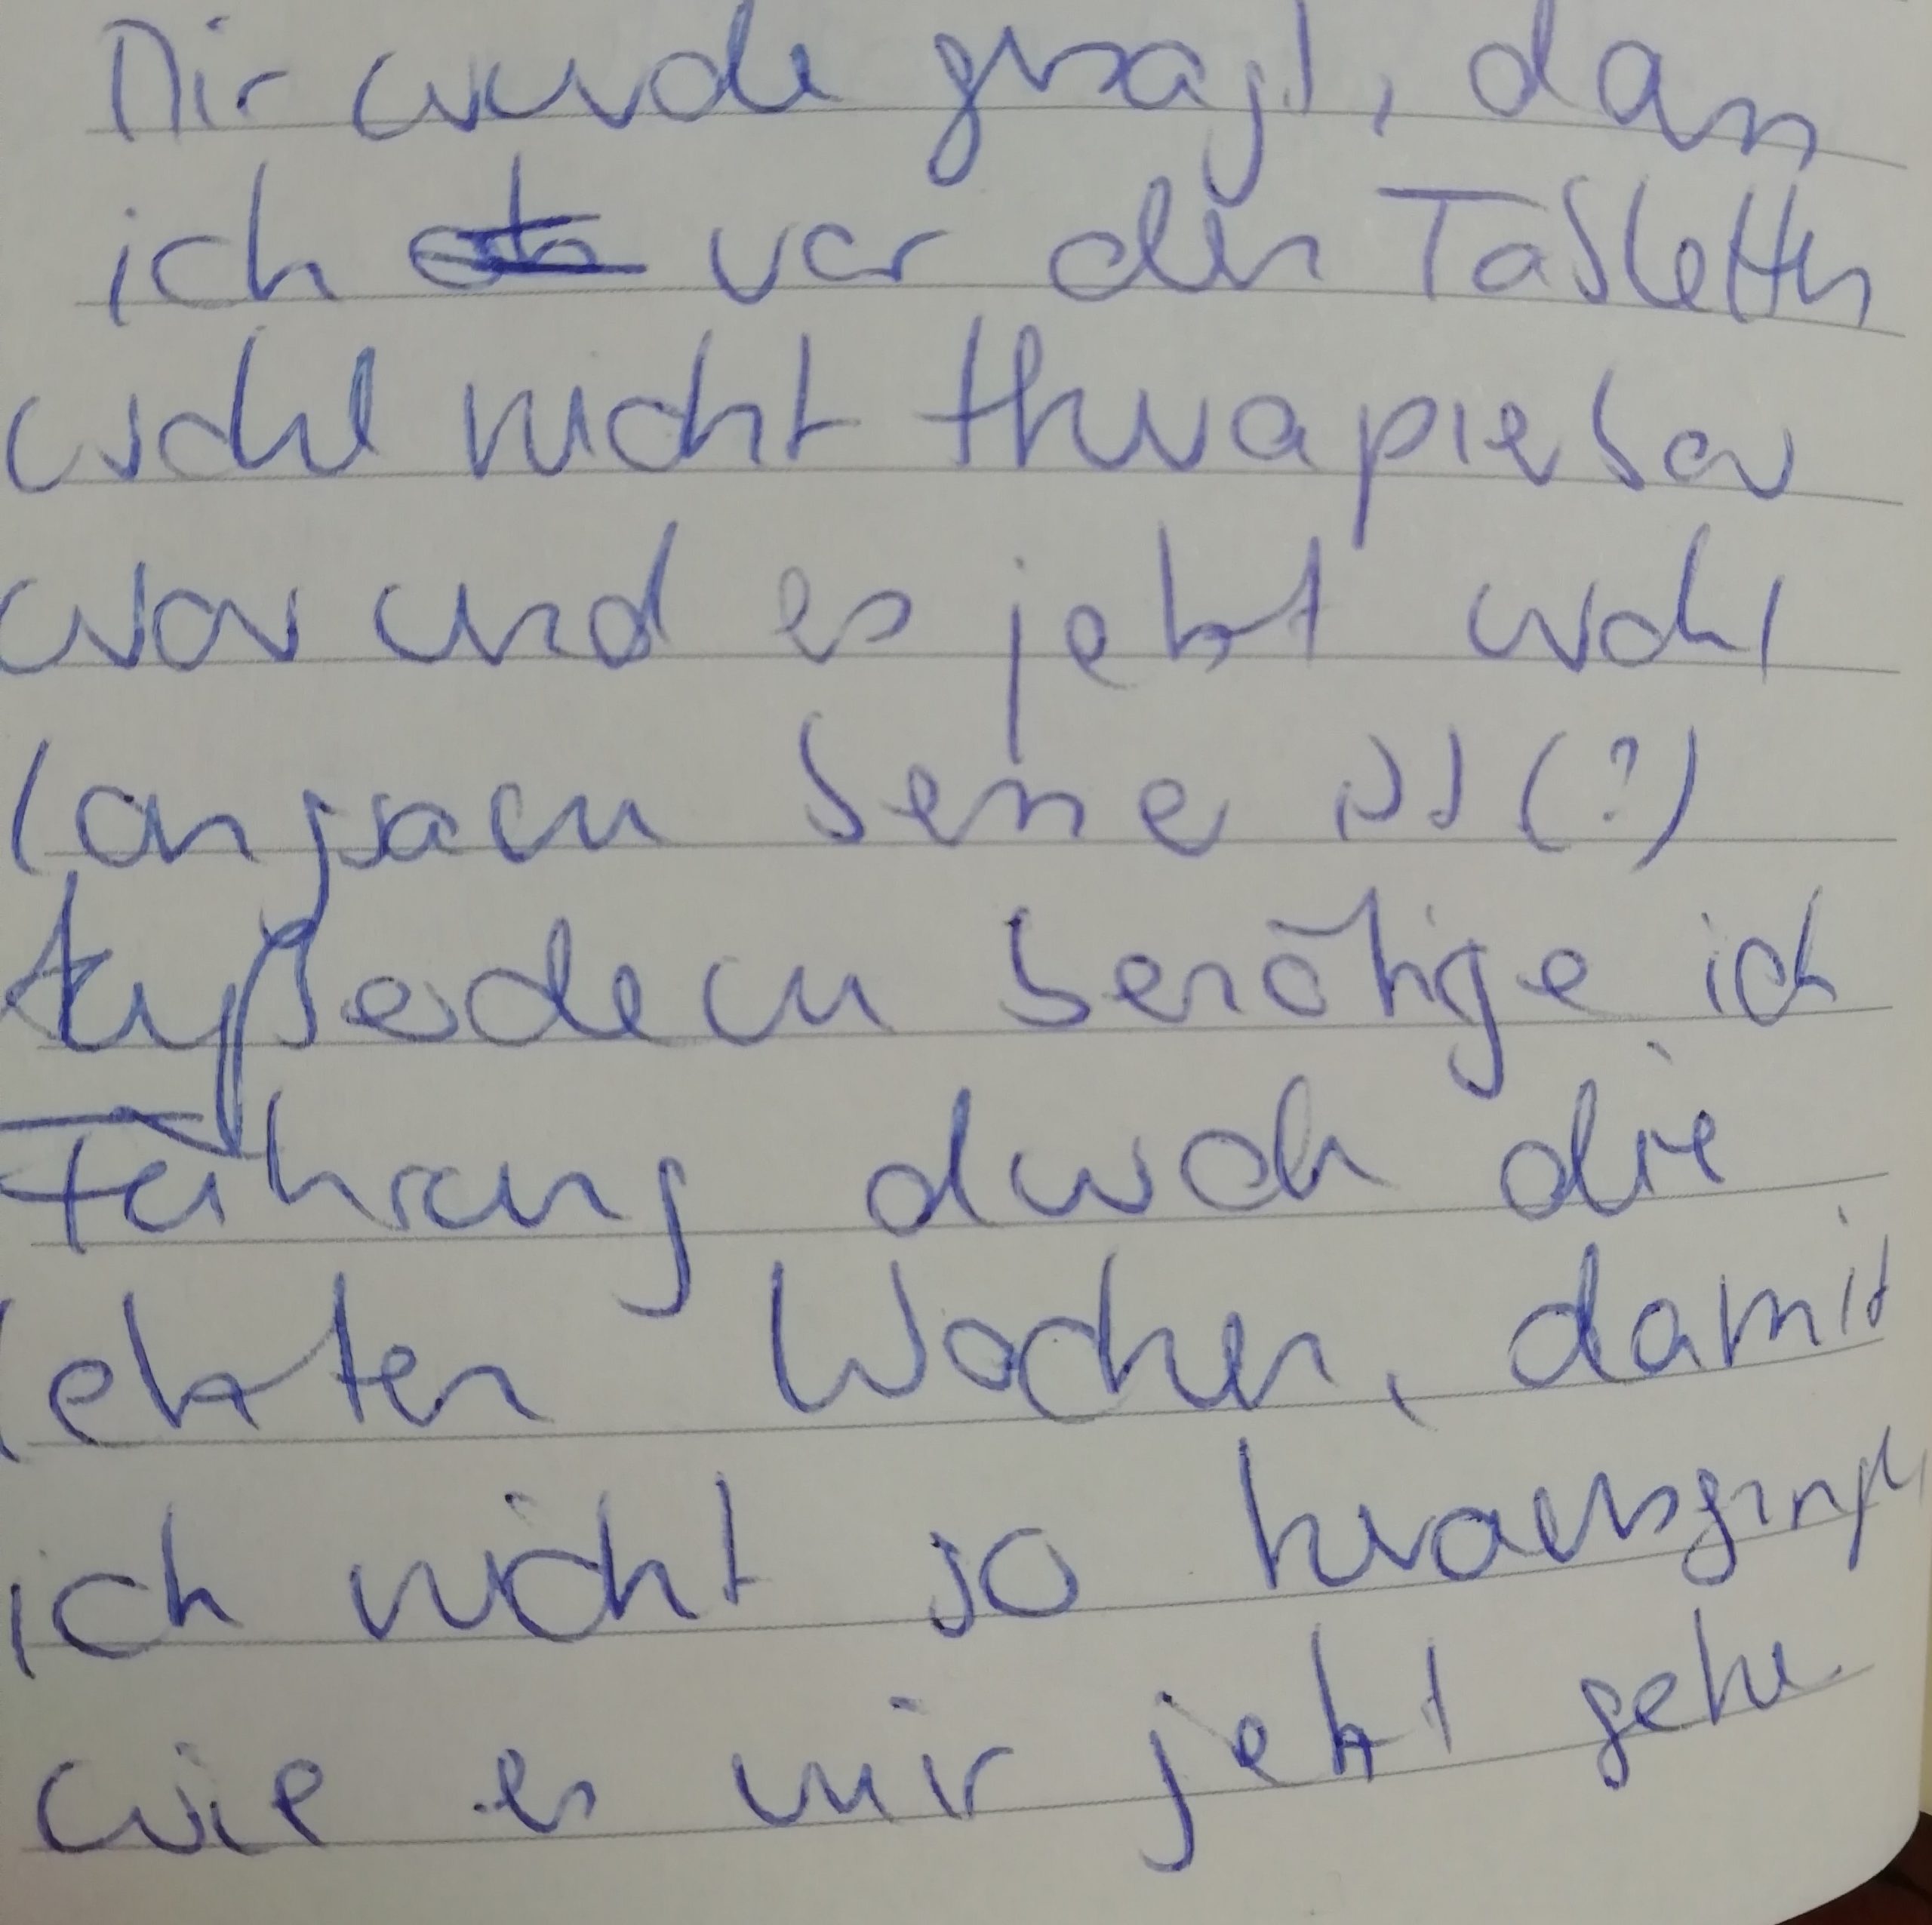 Mir wurde gesagt, dass
ich vor den Tabletten
wohl nicht therapierbar
war und es jetzt wohl
langsam besser ist (?)
Außerdem benötige ich
Führung durch die
letzten Wochen, damit
ich nicht so
wie es mir jetzt gehe